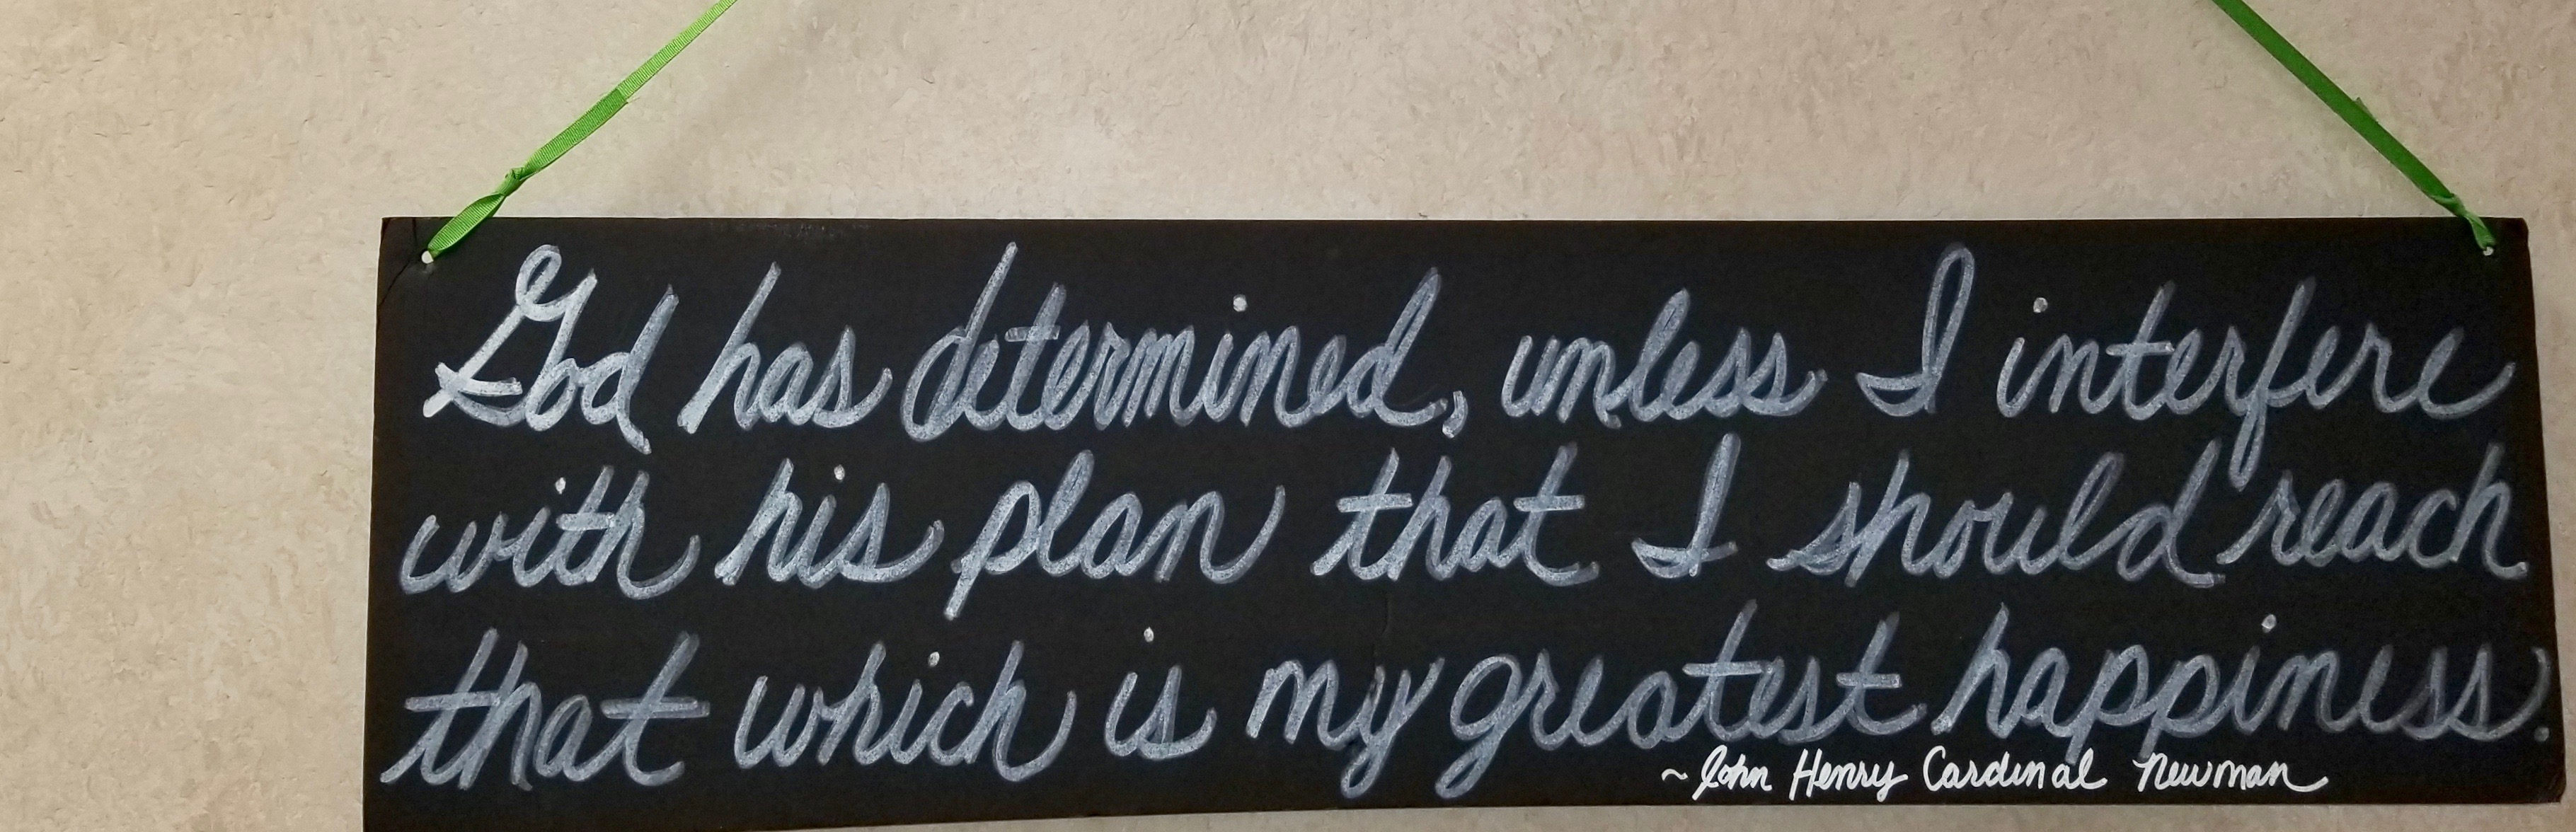 God has determined, unless I interfere
with his plan that I should reach
that which is my greatest happiness.
~John Henry Cardinal Newman